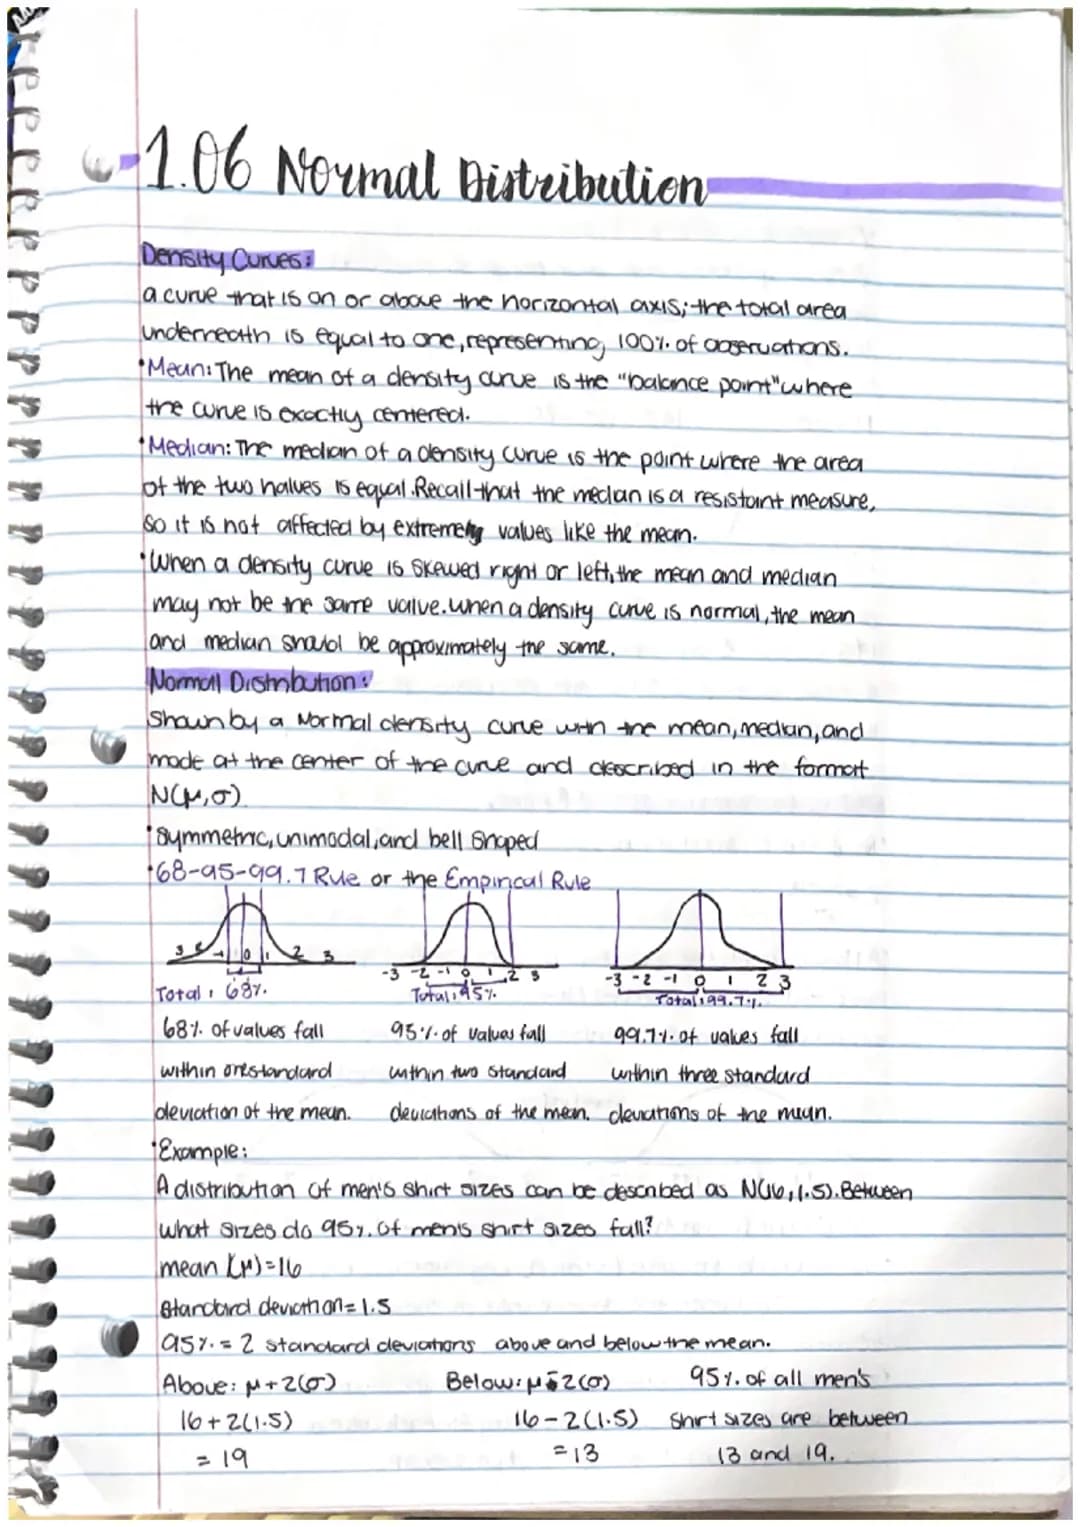 1.06 Normal Distribution
Density Curves:
a curve that is on or above the horizontal axis; the total area
underneath is equal to one, representing 100% of observations.
•Mean: The mean of a density curve is the "balance point" where
the curve is exactly centered.
•Median: The median of a density curve is the point where the area
of the two halves is equal. Recall that the median is a resistant measure,
so it is not affected by extremely values like the mean.
•When a density curve is skewed right or left, the mean and median
may not be the same value. When a density curve is normal, the mean
and median should be approximately the same.
Normal Distribution:
Shown by a Normal density curve with the mean, median, and
mode at the center of the curve and described in the format
N(μ,σ)
•Symmetric, unimodal, and bell shaped
•68-95-99.7 Rule or the Empirical Rule
-1 0 1 2 3
-3 -2 -1 0 1 2 3
-3 -2 -1 0 1 2 3
Total: 68% Total: 95% Total: 99.7%
68% of values fall 95% of values fall 99.7% of values fall
within one standard within two standard within three standard
deviation of the mean. deviations of the mean. deviations of the mean.
•Example:
A distribution of men's shirt sizes can be described as N(16,1.5). Between
what sizes do 95% of men's shirt sizes fall?
mean (μ)=16
Standard deviation=1.5
95% = 2 standard deviations above and below the mean.
Above: μ+2(σ) Below: μ-2(σ) 95% of all men's
16+2(1.5) 16-2(1.5) shirt sizes are between
= 19 =13 13 and 19.